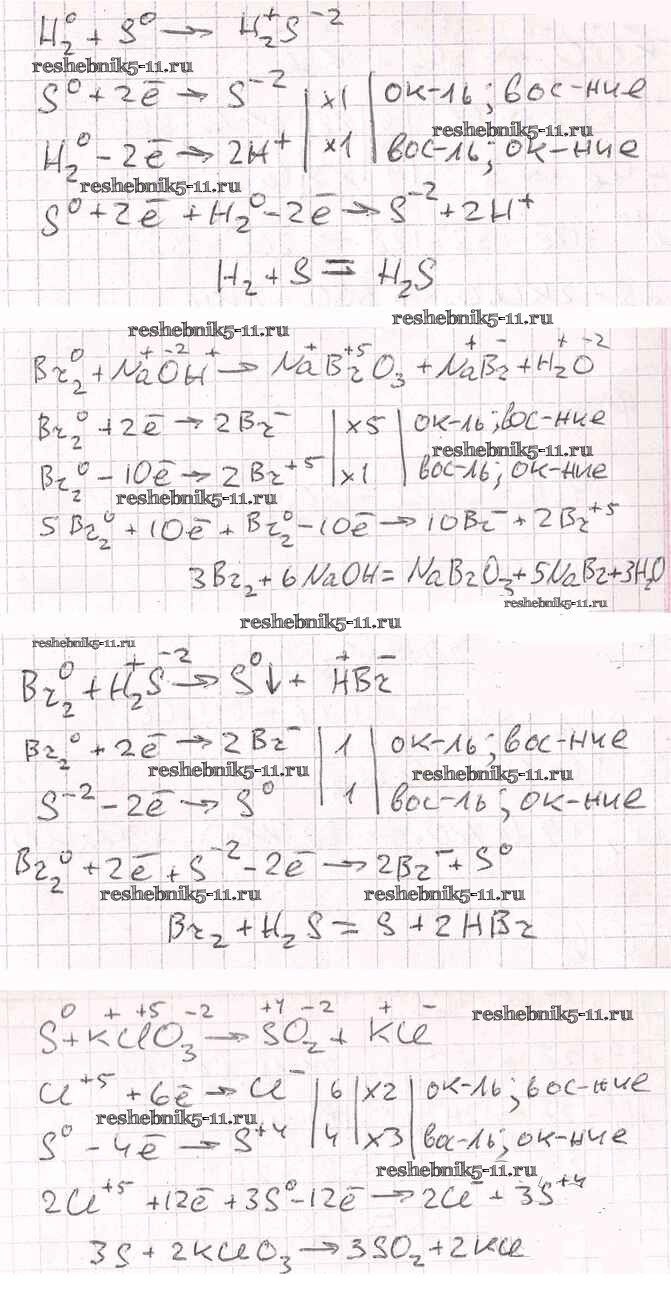 H₂⁰ + S⁰ → H₂⁺S⁻²
reshebnik5-11.ru
S⁰ + 2ē → S⁻² | x1 | ок-ль; вос-ние
reshebnik5-11.ru
H₂⁰ - 2ē → 2H⁺ | x1 | вос-ль; ок-ние
reshebnik5-11.ru
S⁰ + 2ē + H₂⁰ - 2ē → S⁻² + 2H⁺
H₂ + S = H₂S
reshebnik5-11.ru
reshebnik5-11.ru
Br₂⁰ + Na⁺O⁻²H⁺ → Na⁺Br⁺⁵O₃ + Na⁺Br⁻ + H₂⁺O⁻²
Br₂⁰ + 2ē → 2Br⁻ | x5 | ок-ль; вос-ние
reshebnik5-11.ru
Br₂⁰ - 10ē → 2Br⁺⁵ | x1 | вос-ль; ок-ние
reshebnik5-11.ru
5Br₂⁰ + 10ē + Br₂⁰ - 10ē → 10Br⁻ + 2Br⁺⁵
3Br₂ + 6NaOH = NaBrO₃ + 5NaBr + 3H₂O
reshebnik5-11.ru
reshebnik5-11.ru
reshebnik5-11.ru
Br₂⁰ + H₂⁺S⁻² → S⁰↓ + H⁺Br⁻
Br₂⁰ + 2ē → 2Br⁻ | 1 | ок-ль; вос-ние
reshebnik5-11.ru reshebnik5-11.ru
S⁻² - 2ē → S⁰ | 1 | вос-ль; ок-ние
Br₂⁰ + 2ē + S⁻² - 2ē → 2Br⁻ + S⁰
reshebnik5-11.ru reshebnik5-11.ru
Br₂ + H₂S = S + 2HBr
reshebnik5-11.ru
S⁰ + K⁺Cl⁺⁵O₃⁻² → S⁺⁴O₂⁻² + K⁺Cl⁻
Cl⁺⁵ + 6ē → Cl⁻ | 6 | x2 | ок-ль; вос-ние
reshebnik5-11.ru
S⁰ - 4ē → S⁺⁴ | 4 | x3 | вос-ль; ок-ние
reshebnik5-11.ru
2Cl⁺⁵ + 12ē + 3S⁰ - 12ē → 2Cl⁻ + 3S⁺⁴
3S + 2KClO₃ → 3SO₂ + 2KCl